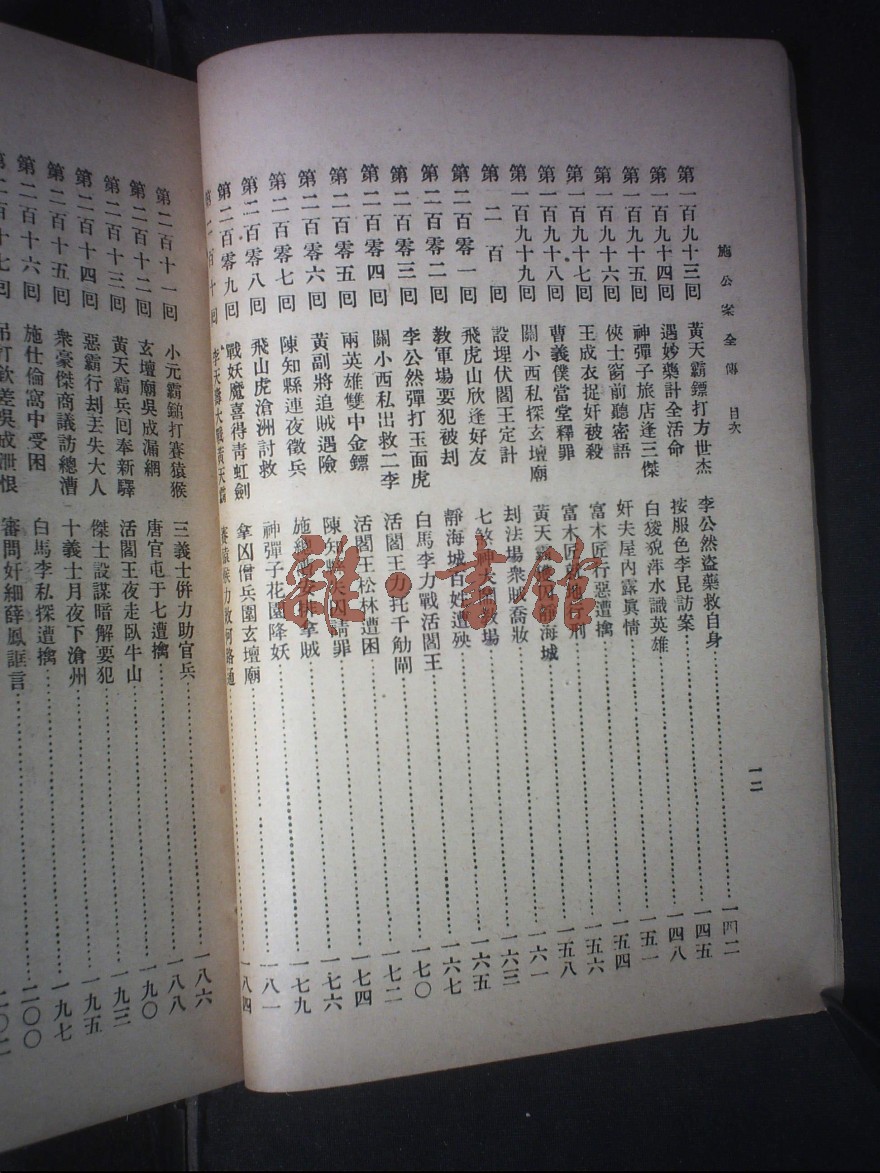 施公案全傳 目次
一二
第一百九十三回 黃天霸鏢打方世杰 李公然盜藥救自身 一四二
第一百九十四回 遇妙藥計全活命 按服色李昆訪案 一四五
第一百九十五回 神彈子旅店逢三傑 白狻猊萍水識英雄 一四八
第一百九十六回 俠士窗前聽密語 奸夫屋內露眞情 一五一
第一百九十七回 王成衣捉奸被殺 富木匠行惡遭擒 一五四
第一百九十八回 曹義僕當堂釋罪 富木匠 一五六
第一百九十九回 關小西私探玄壇廟 黃天霸 海城 一五八
第二百回 設埋伏閻王定計 刦法場衆賊喬妝 一六一
第二百零一回 飛虎山欣逢好友 七煞神 教場 一六三
第二百零二回 教軍場要犯被刦 靜海城百姓遭殃 一六五
第二百零三回 李公然彈打玉面虎 白馬李力戰活閻王 一六七
第二百零四回 關小西私出救二李 活閻王力托千觔閘 一七〇
第二百零五回 兩英雄雙中金鏢 活閻王松林遭困 一七二
第二百零六回 黃副將追賊遇險 陳知縣失囚請罪 一七四
第二百零七回 陳知縣連夜徵兵 施 拿賊 一七六
第二百零八回 飛山虎滄洲討救 神彈子花園降妖 一七九
第二百零九回 戰妖魔喜得靑虹劍 拿凶僧兵圍玄壇廟 一八一
第二百十回 李天壽大戰黃天霸 賽猿猴力救何路通 一八四
第二百十一回 小元霸鎚打賽猿猴 三義士併力助官兵 一八六
第二百十二回 玄壇廟吳成漏網 唐官屯于七遭擒 一八八
第二百十三回 黃天霸兵回奉新驛 活閻王夜走臥牛山 一九〇
第二百十四回 惡霸行刦丟失大人 傑士設謀暗解要犯 一九三
第二百十五回 衆豪傑商議訪總漕 十義士月夜下滄州 一九五
第二百十六回 施仕倫窩中受困 白馬李私探遭擒 一九七
第二百十七回 吊打欽差吳成泄恨 審問奸細薛鳳誆言 二〇〇
二〇二
雜·書館